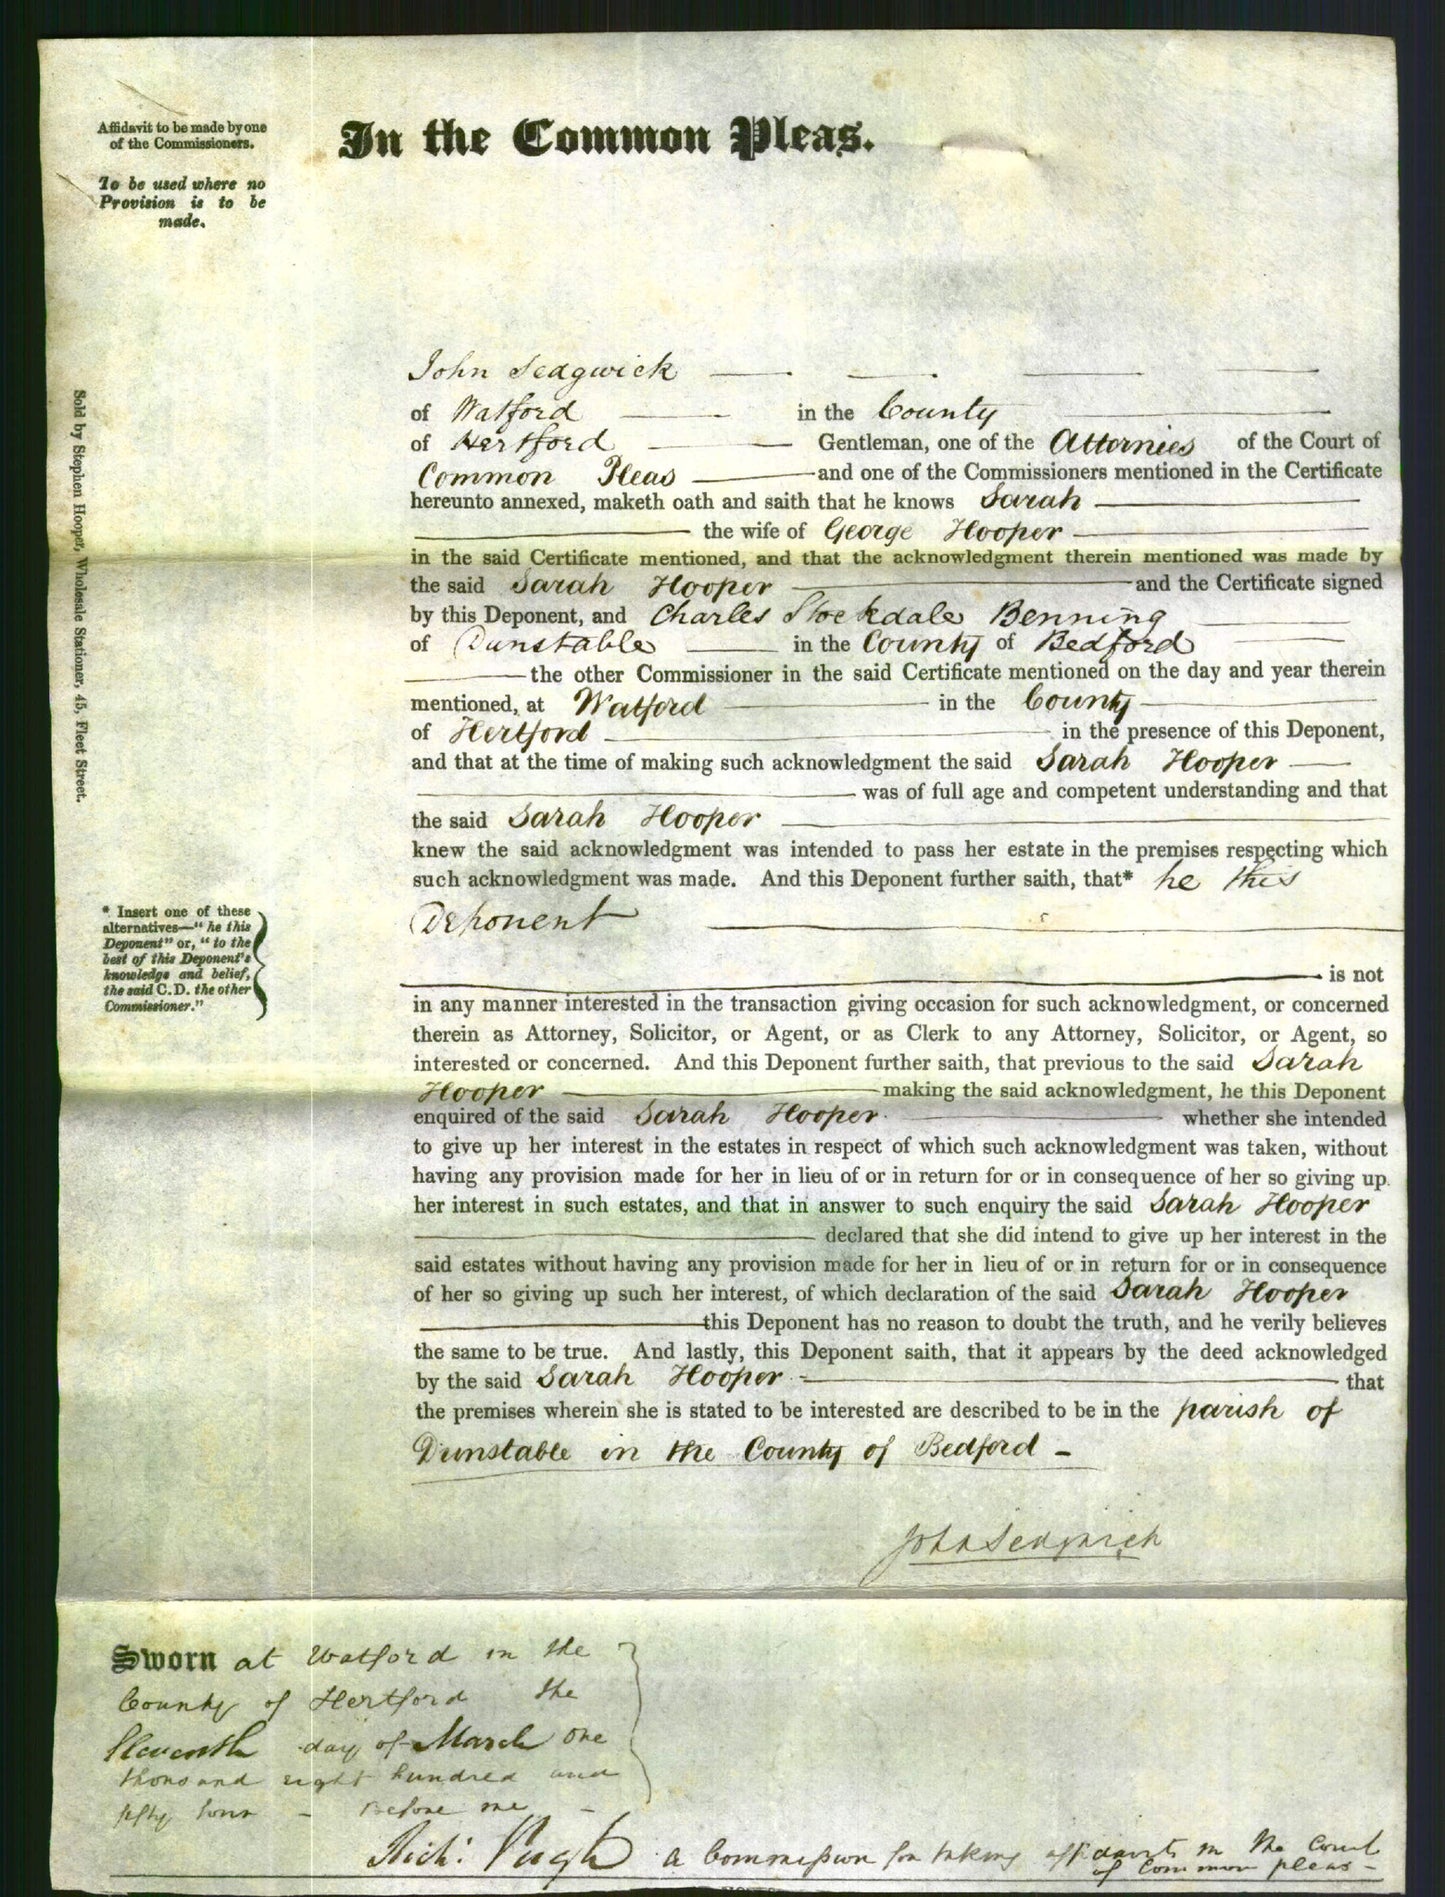 Affidavit to be made by one
of the Commissioners.
To be used where no
Provision is to be
made.
In the Common Pleas.
John Sedgwick
of Watford in the County
of Hertford Gentleman, one of the Attornies of the Court of
Common Pleas and one of the Commissioners mentioned in the Certificate
hereunto annexed, maketh oath and saith that he knows Sarah
the wife of George Hooper
in the said Certificate mentioned, and that the acknowledgment therein mentioned was made by
the said Sarah Hooper and the Certificate signed
by this Deponent, and Charles Stockdale Benning
of Dunstable in the County of Bedford
the other Commissioner in the said Certificate mentioned on the day and year therein
mentioned, at Watford in the County
of Hertford in the presence of this Deponent,
and that at the time of making such acknowledgment the said Sarah Hooper
was of full age and competent understanding and that
the said Sarah Hooper
knew the said acknowledgment was intended to pass her estate in the premises respecting which
such acknowledgment was made. And this Deponent further saith, that* he this
Deponent
is not
in any manner interested in the transaction giving occasion for such acknowledgment, or concerned
therein as Attorney, Solicitor, or Agent, or as Clerk to any Attorney, Solicitor, or Agent, so
interested or concerned. And this Deponent further saith, that previous to the said Sarah
Hooper making the said acknowledgment, he this Deponent
enquired of the said Sarah Hooper whether she intended
to give up her interest in the estates in respect of which such acknowledgment was taken, without
having any provision made for her in lieu of or in return for or in consequence of her so giving up
her interest in such estates, and that in answer to such enquiry the said Sarah Hooper
declared that she did intend to give up her interest in the
said estates without having any provision made for her in lieu of or in return for or in consequence
of her so giving up such her interest, of which declaration of the said Sarah Hooper
this Deponent has no reason to doubt the truth, and he verily believes
the same to be true. And lastly, this Deponent saith, that it appears by the deed acknowledged
by the said Sarah Hooper that
the premises wherein she is stated to be interested are described to be in the parish of
Dunstable in the County of Bedford -
Sold by Stephen Hooper, Wholesale Stationer, 45, Fleet Street.
* Insert one of these
alternatives—"he this
Deponent" or, "to the
best of this Deponent's
knowledge and belief,
the said C.D. the other
Commissioner."
John Sedgwick
Sworn at Watford in the
County of Hertford the
Eleventh day of March One
thousand eight hundred and
fifty four - Before me -
Rich: Pugh a Commissioner for taking affidavits in the Court
of Common pleas -